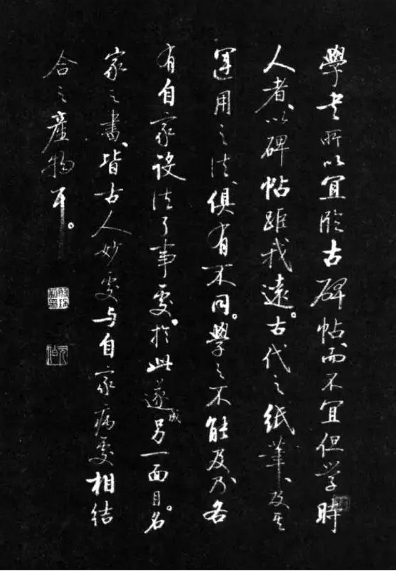 學書所以宜臨古碑帖、而不宜但学時
人者、以碑帖距我遠。古代之纸筆、及其
運用之法、俱有不同。學之不能及、乃各
有自家设法了事處。於此遂成另一面目。名
家之書、皆古人妙處与自家病處相结
合之產物耳。